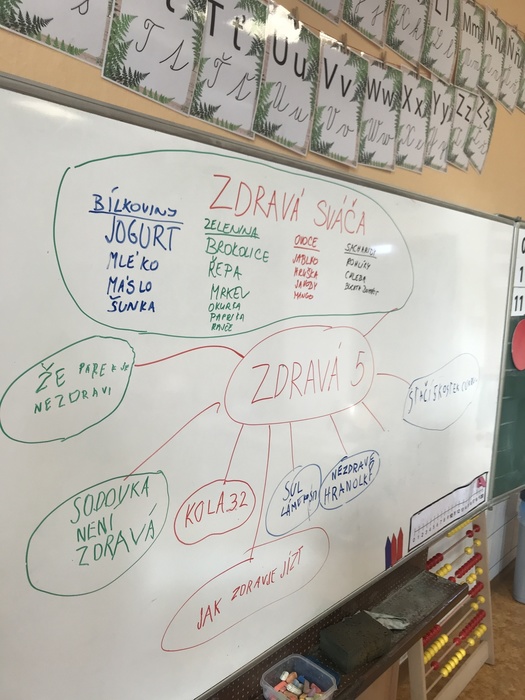 Tt
Uu
Vv
Ww
Xx
Yy
Zz
Žž
Ll
Mm
Nn
ZDRAVÁ SVÁČA
BÍLKOVINY
JOGURT
MLÉKO
MÁSLO
ŠUNKA
ZELENINA
BROKOLICE
ŘEPA
MRKEV
OKURKA
PAPRIKA
OVOCE
JABLKO
HRUŠKA
JAHODY
MANGO
SACHARIDY
ROHLÍKY
CHLEBA
ZDRAVÁ 5
ŽE PAREK JE
NEZDRAVÍ
SODOVKA
NENÍ
ZDRAVÁ
KOLA 32
SŮL
NEZDRAVÉ
HRANOLKY
STAČÍ 5 KOSTEK
JAK ZDRAVJE JÍZT